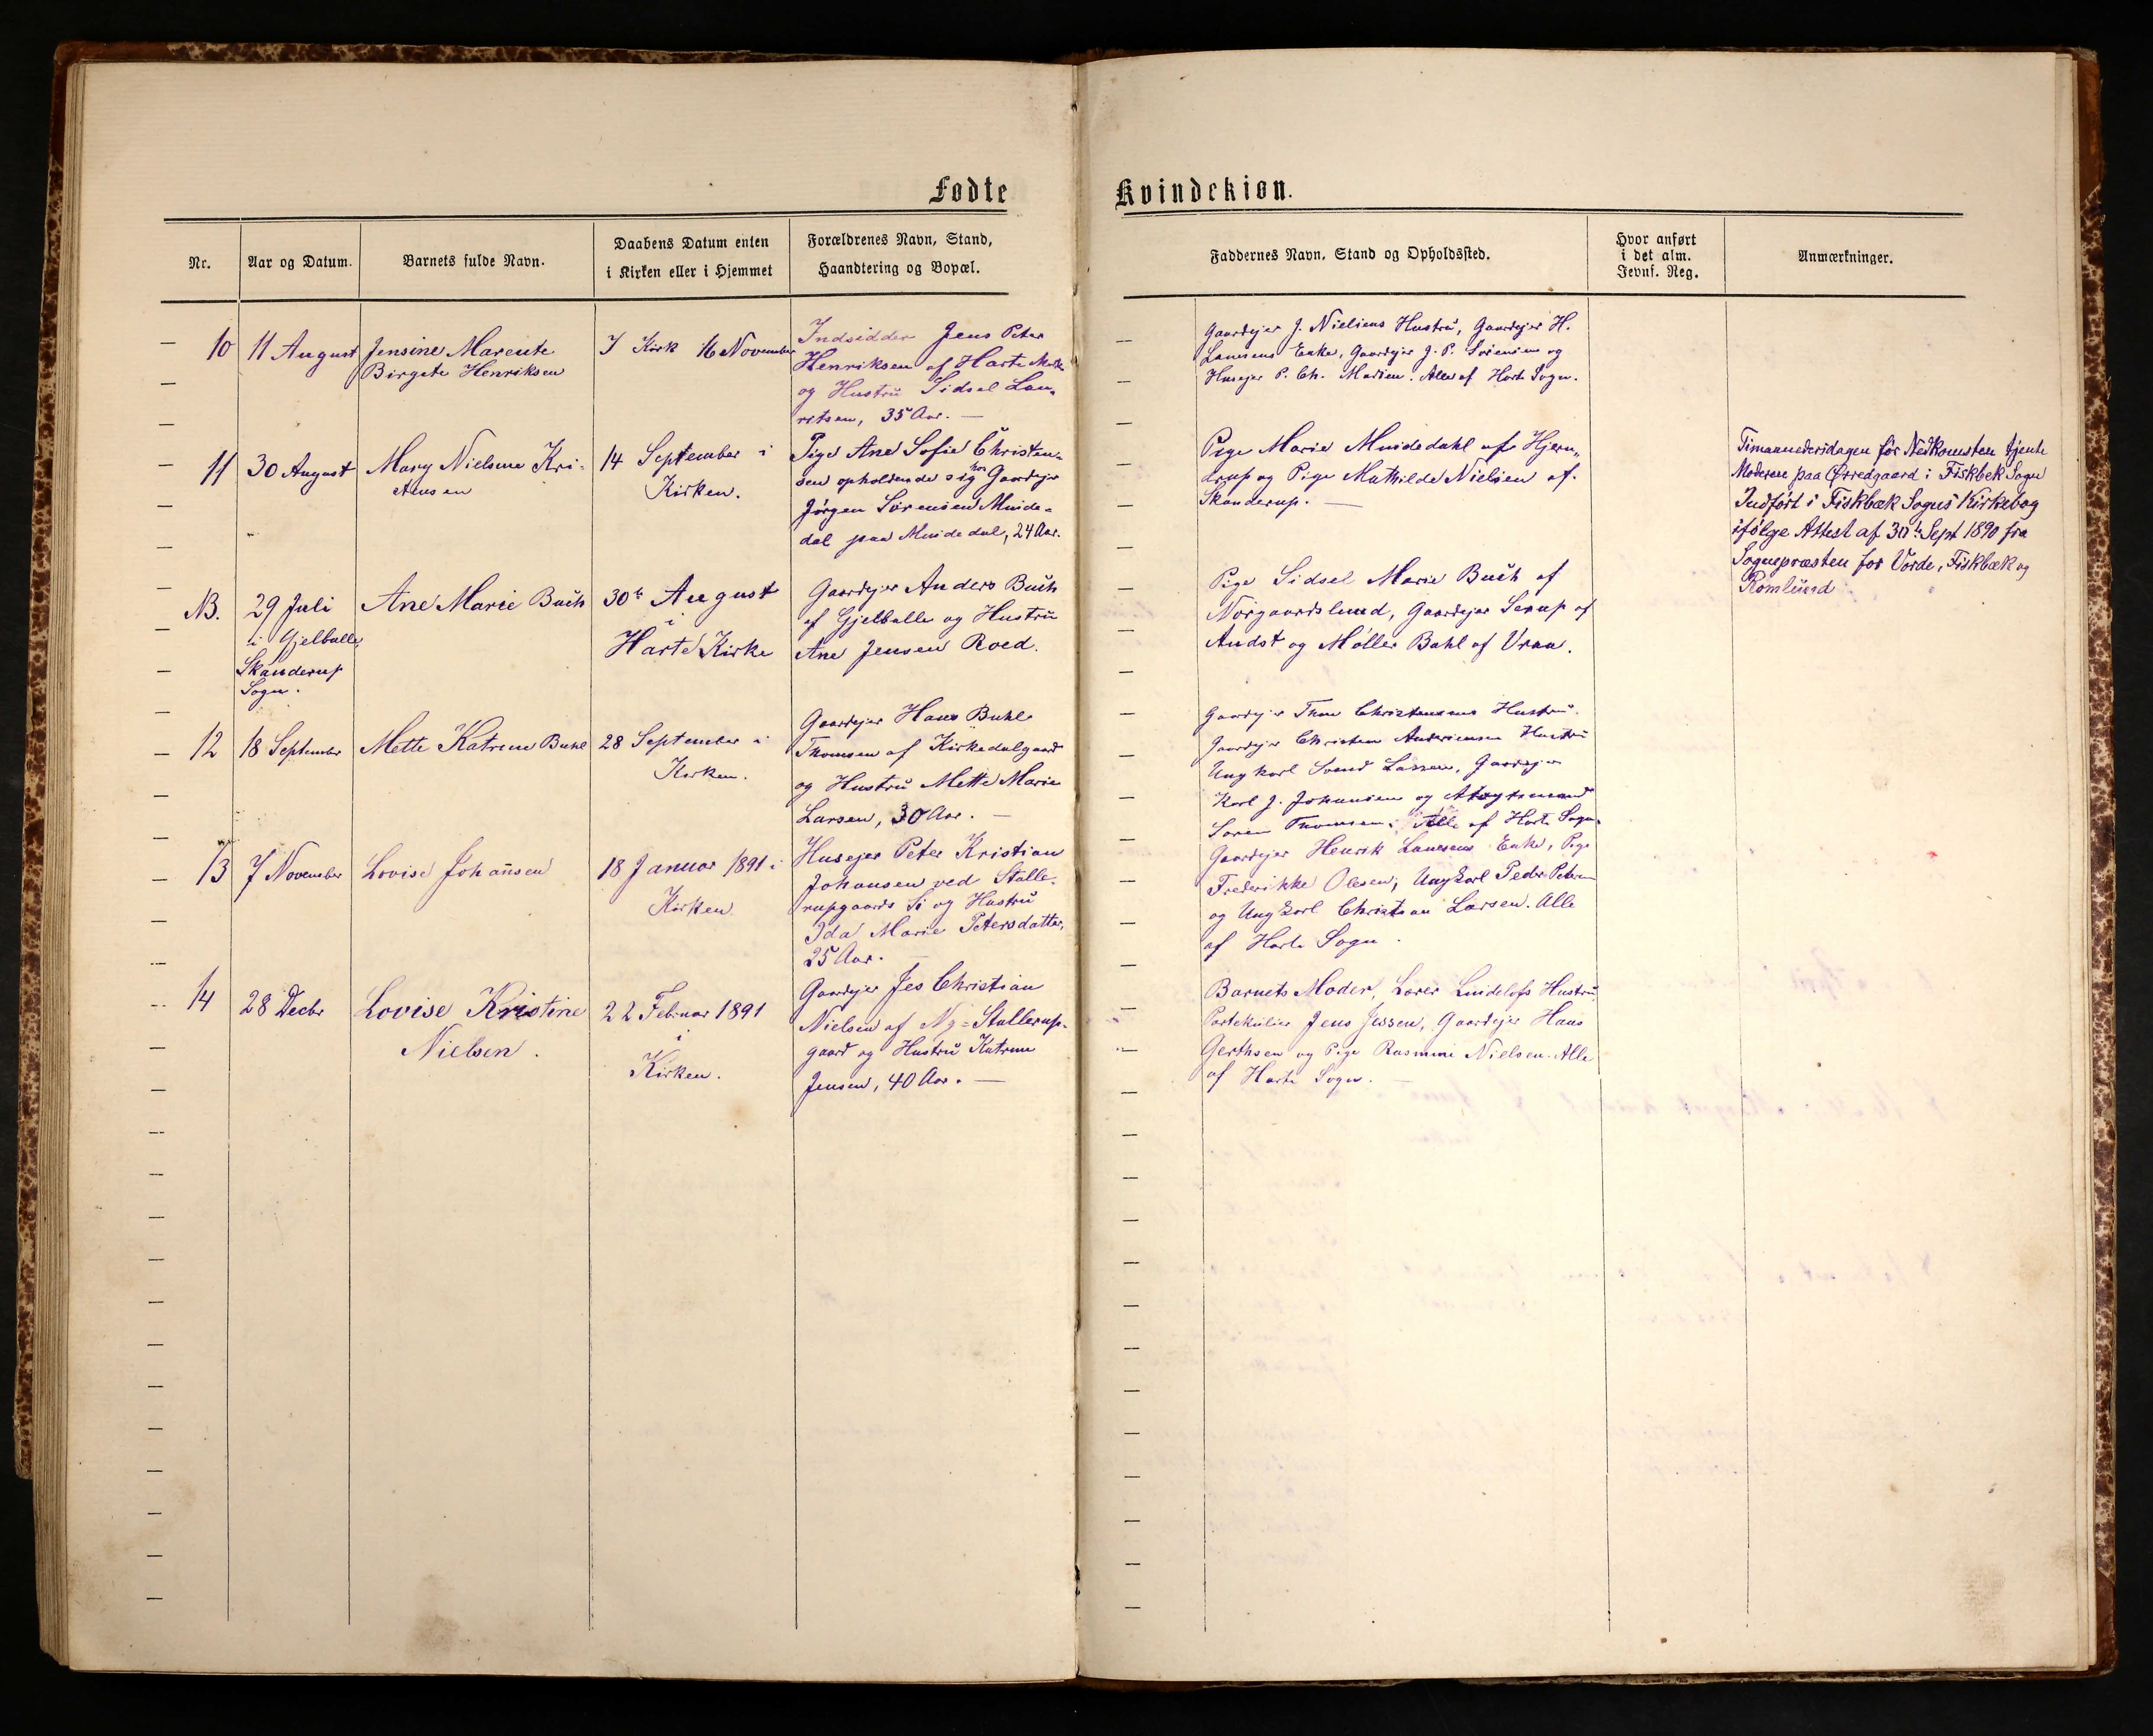 Fødte
Kvindekiøn.
Nr.
Aar og Datum.
Barnets fulde Navn.
Daabens Datum enten
i Kirken eller i Hjemmet
Forældrenes Navn, Stand,
Haandtering og Bopæl.
Faddernes Navn, Stand og Opholdssted.
Hvor anført
i det alm.
Jevnf. Reg.
Anmærkninger.
10
11 August
Jensine Marente
Birgete Henriksen
I Kirk 16 November
Indsidder Jens Peter
Henriksen af Harte Mark
og Hustru Sidsel Lau-
ritsen, 35 Aar. —
Gaardejer J. Nielsens Hustru, Gaardejer H.
Laussens Enke, Gaardejer J. P. Sørensen og
Husejer P. Ch. Madsen. Alle af Harte Sogn.
11
30 August
Mary Nielsine Kri-
stensen
14 September i
Kirken.
Pige Ane Sofie Christen-
sen opholdende sig hos Gaardejer
Jørgen Sørensen Munde-
dal paa Mundedal, 24 Aar.
Pige Marie Mundedahl af Hjern-
drup og Pige Mathilde Nielsen af
Skanderup. —
Timaanedersdagen før Nedkomsten tjente
Moderen paa Ørredgaard i Fiskbek Sogn
Indført i Fiskbæk Sogns Kirkebog
ifølge Attest af 30te Sept 1890 fra
Sognepræsten for Vorde, Fiskbæk og
Romlund
NB.
29 Juli
i Gjelballe,
Skanderup
Sogn.
Ane Marie Buch
30te August
i
Harte Kirke
Gaardejer Anders Buch
af Gjelballe og Hustru
Ane Jensen Roed.
Pige Sidsel Marie Buch af
Nørgaardslund, Gaardejer Serup af
Andst og Møller Bahl af Vraa.
12
18 September
Mette Katrine Buhl
28 September i
Kirken.
Gaardejer Hans Buhl
Thomsen af Kirkedalgaard
og Hustru Mette Marie
Larsen, 30 Aar. —
Gaardejer Christensens Hustru.
Gaardejer Christen Andersens Hustru
Ungkarl Svend Lassen, Gaardejer
Karl J. Johansen og Aftægtsmand
Søren Thomsen. Alle af Harte Sogn.
13
7 November
Lovise Johansen
18 Januar 1891 i
Kirken
Husejer Peter Kristian
Johansen ved Stalle-
rupgaards Sø og Hustru
Ida Marie Petersdatter,
25 Aar.
Gaardejer Henrik Laussens Enke, Pige
Frederikke Olesen, Ungkarl Peder Petersen
og Ungkarl Christian Larsen. Alle
af Harte Sogn.
14
28 Decbr
Lovise Kristine
Nielsen.
22 Februar 1891
i
Kirken.
Gaardejer Jes Christian
Nielsen af Ny-Stallerup-
gaard og Hustru Katrine
Jensen, 40 Aar. —
Barnets Moder, Lærer Lindelofs Hustru
Partekulier Jens Jessen, Gaardejer Hans
Gerthsen og Pige Rasmine Nielsen. Alle
af Harte Sogn. —